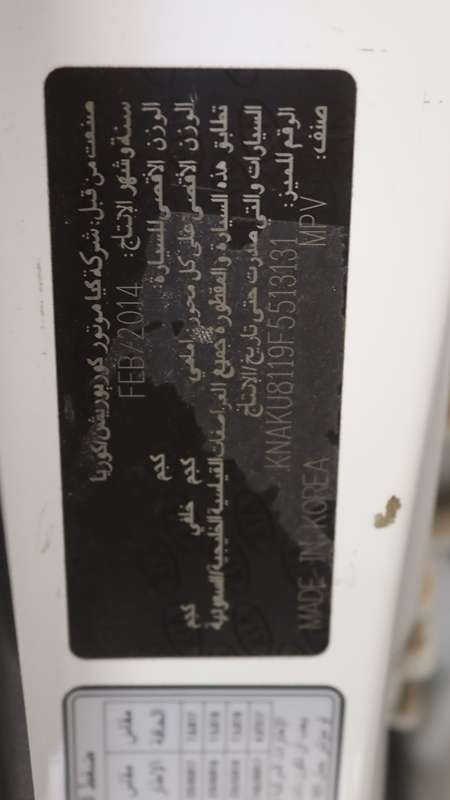 صنعت من قبل: شركة كيا موتور كوربوريشن/كوريا
سنة وشهر الإنتاج: FEB/2014
الوزن الأقصى للسيارة: كجم
الوزن الأقصى على كل محور: أمامي كجم خلفي كجم
تطابق هذه السيارة والمقطورة جميع المواصفات القياسية الخليجية/السعودية
السيارات والتي صدرت حتى تاريخ/الإنتاج
الرقم المميز: KNAKU8119F5513131
صنف: MPV MADE IN KOREA
ضغط
مقاس الحافة مقاس الإطار